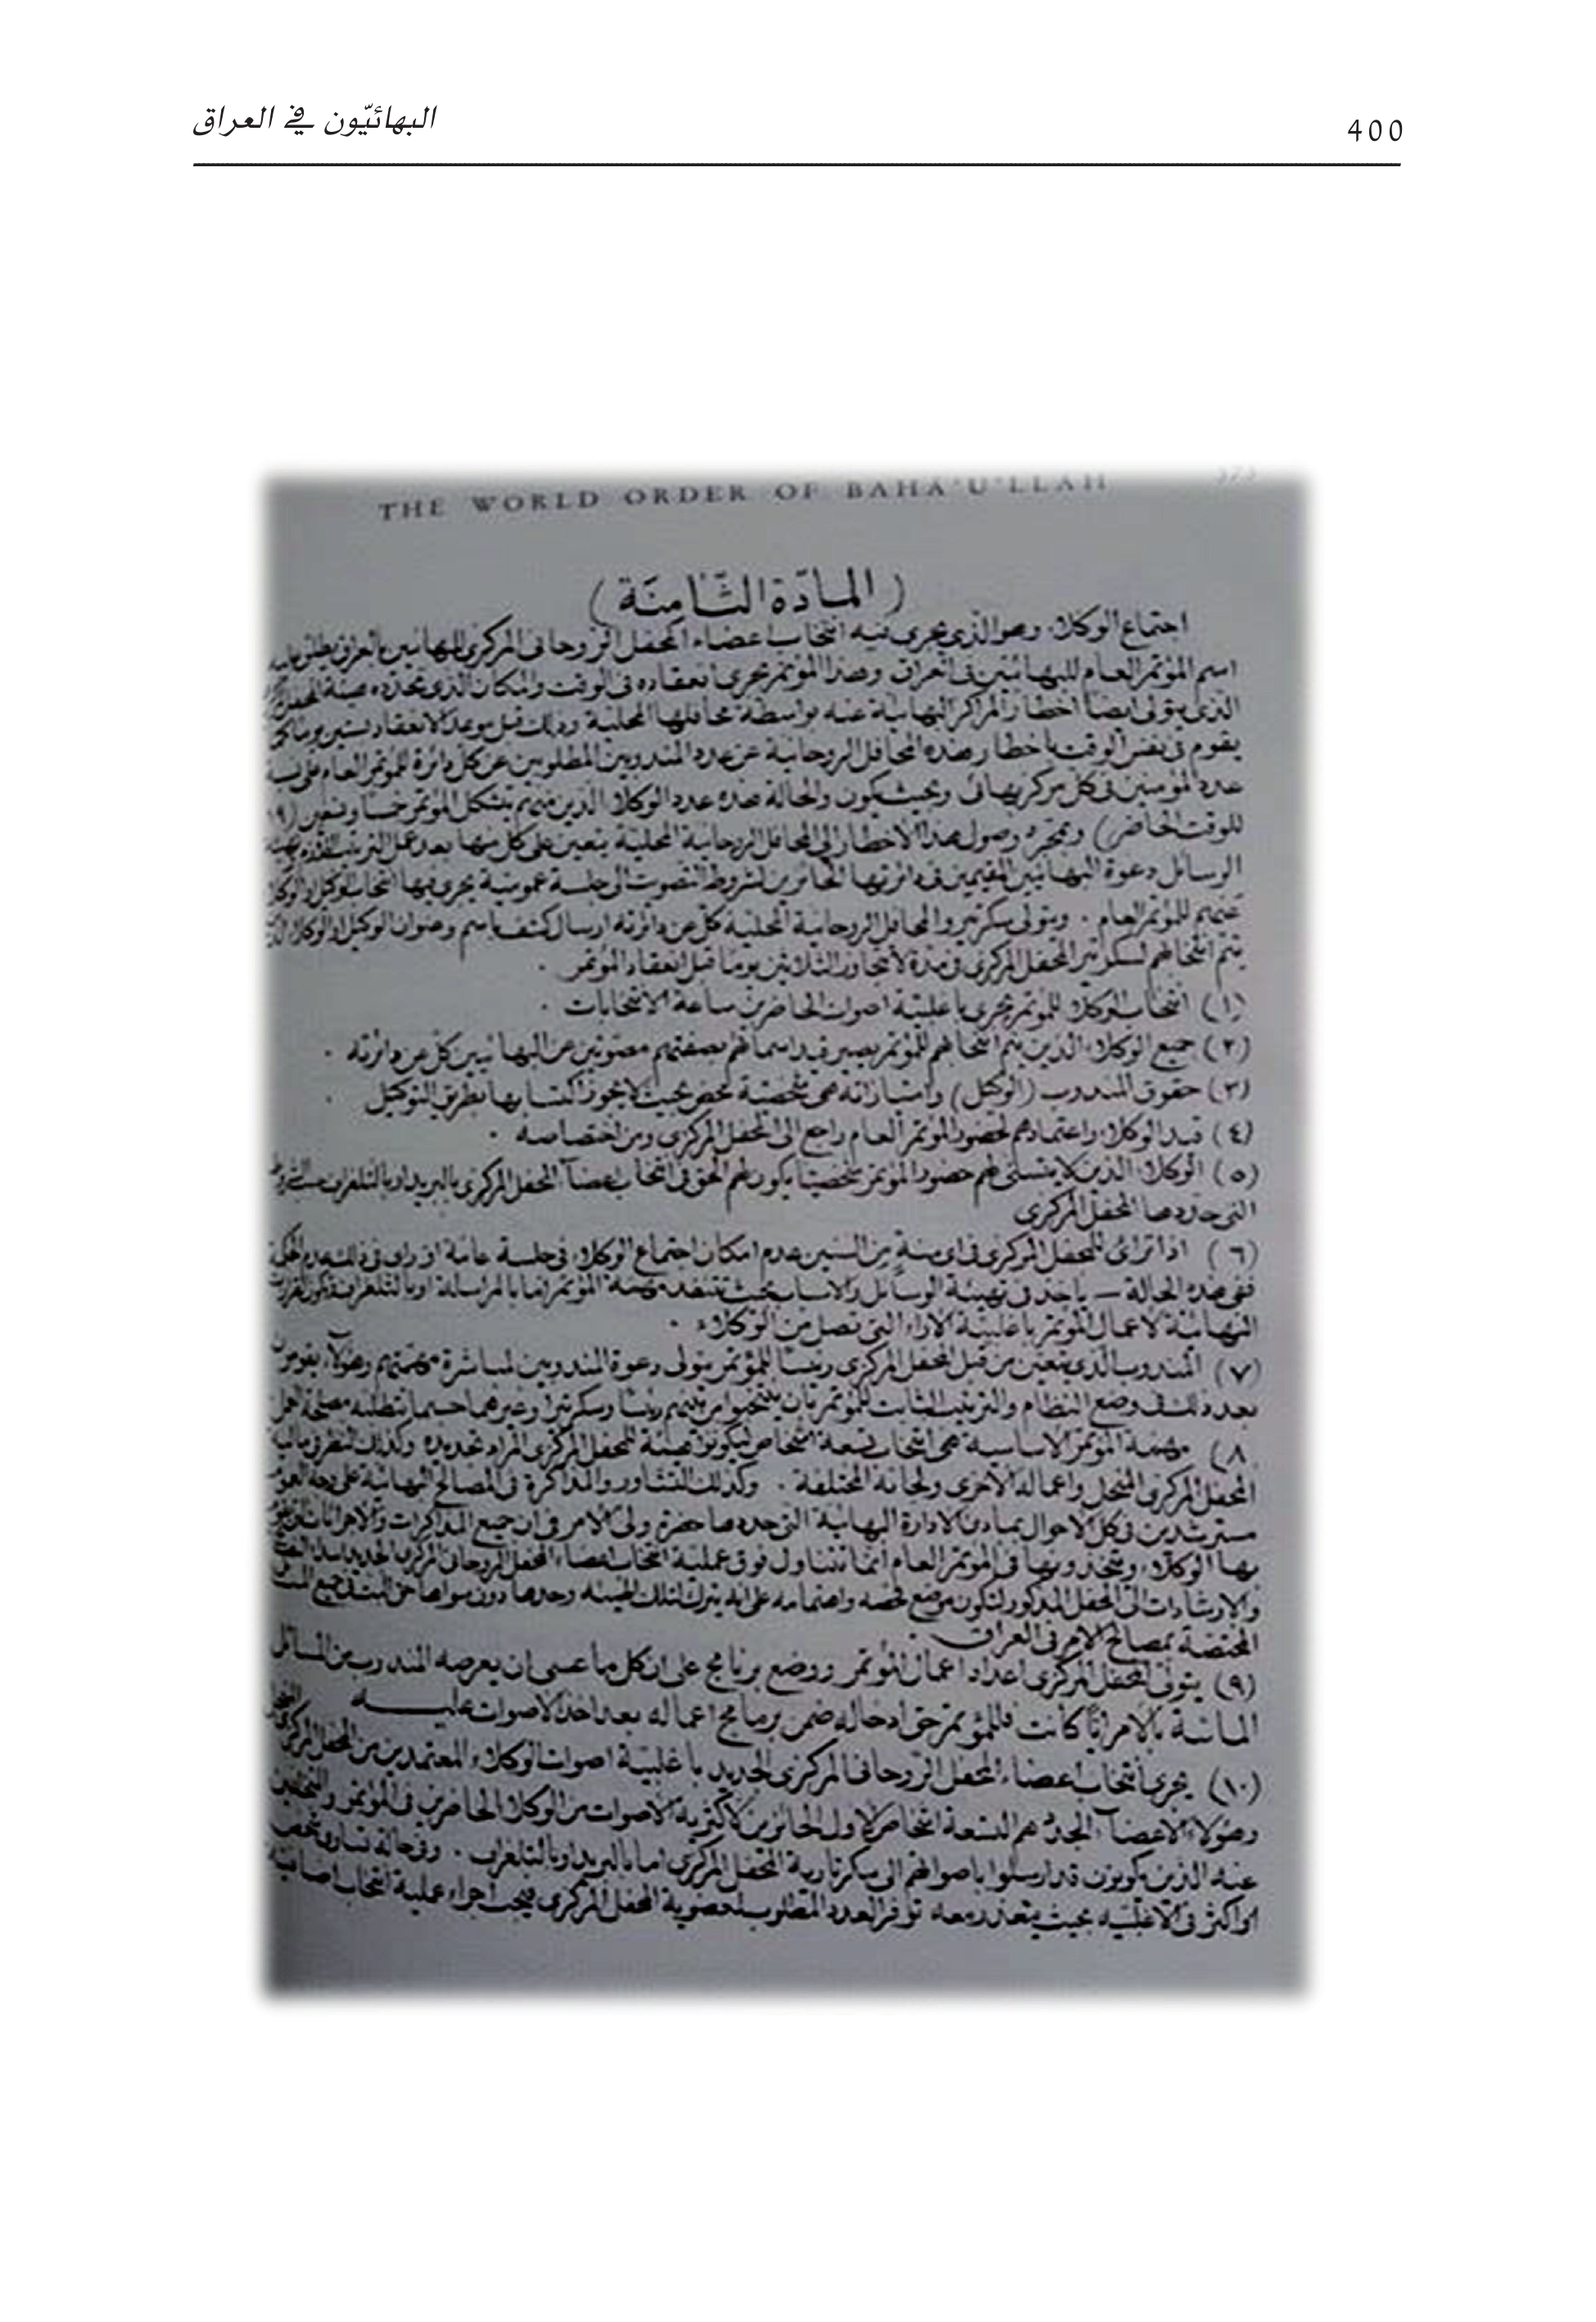 البهائيّون في العراق
400
THE WORLD ORDER OF BAHÁ'U'LLÁH
(المادّة الثّامنة)
اجتماع الوكلاء وهو الذي يجرى فيه انتخاب اعضاء المحفل الروحانى المركزى للبهائيين بالعراق يطلق عليه
اسم المؤتمر العام للبهائيين فى العراق وهذا المؤتمر يجرى انعقاده فى الوقت والمكان الذى تحدده هيئة المحفل
الذى يتولى ايضا اخطار المراكز البهائية عنه بواسطة محافلها المحلية وذلك قبل موعد الانعقاد بستين يوما كى
يقوم فى نفس الوقت باخطار هذه المحافل الروحانية عن عدد المندوبين المطلوبين عن كل دائرة للمؤتمر العام على نسبة
عدد المؤمنين فى كل مركز بهائى وبحيث يكون والحالة هذه عدد الوكلاء الذين منهم يتشكل المؤتمر
للوقت الحاضر) وبمجرد وصول هذا الاخطار الى المحافل الروحانية المحلية يتعين على كل منها بعد عمل الترتيب
الرسائل دعوة البهائيين المقيمين فى دائرتها الحائزين لشروط التصويت الى جلسة عمومية يجرى فيها انتخاب الوكيل او الوكلاء
عنهم للمؤتمر العام . ويتولى سكرتيرو المحافل الروحانية المحلية كل عن دائرته ارسال كشف باسم وعنوان الوكيل او الوكلاء
يتم انتخابهم لسكرتير المحفل المركزى فى مدة لا تتجاوز الثلاثين يوما قبل انعقاد المؤتمر .
(١) انتخاب الوكلاء للمؤتمر يجرى باغلبية اصوات الحاضرين ساعة الانتخابات .
(٢) جميع الوكلاء الذين يتم انتخابهم للمؤتمر يصير قيد اسمائهم بصفتهم مصوتين عن البهائيين كل عن دائرته .
(٣) حقوق المندوب (الوكيل) وامتيازاته هى شخصية محض بحيث لا يجوز اكتسابها بطريق التوكيل .
(٤) قيد الوكلاء واعتمادهم لحضور المؤتمر العام راجع الى المحفل المركزى ومن اختصاصه .
(٥) الوكلاء الذين لا يتسنى لهم حضور المؤتمر شخصيا يكون لهم الحق فى انتخاب اعضاء المحفل المركزى بالبريد او بالتلغراف
التى حددها المحفل المركزى
(٦) اذا ترائ للمحفل المركزى فى اى سنة من السنين عدم امكان اجتماع الوكلاء فى جلسة عامة او راى فى ذلك عدم الحكمة
ففى هذه الحالة – ياخذ فى تهيئة الوسائل والاسباب بحيث تنفذ مهمة المؤتمر اما بالمراسلة او بالتلغراف
النهائية لاعمال المؤتمر باغلبية الآراء التى تصل من الوكلاء .
(٧) المندوب الذى يتعين من قبل المحفل المركزى رئيسا للمؤتمر يتولى دعوة المندوبين لمباشرة مهمتهم وهؤلاء يقومون
بعد ذلك فى وضع النظام والترتيب الثابت للمؤتمر بان ينتخبوا من بينهم رئيسا وسكرتيرا وغيرهما حسبما تتطلبه مصلحة العمل
(٨ مهمة المؤتمر الاساسية هى انتخاب تسعة اشخاص ليكونوا هيئة للمحفل المركزى المراد تجديده وكذلك النظر فى
المحفل المركزى المنحل واعماله الاخرى ولجانه المختلفة . وكذلك التشاور والمذاكرة فى المصالح البهائية على وجه العموم
مسترشدين فى كل الاحوال بمبادئ الادارة البهائية التى حددها حضرة ولى الامر فى ان جميع المذاكرات والاجراءات
بها الوكلاء ويتخذونها فى المؤتمر العام انما تتناول فوق عملية انتخاب اعضاء المحفل الروحانى المركزى الجديد
والارشادات الى المحفل المذكور لتكون موضع فحصه واهتمامه على انه يترك لتلك الهيئة وحدها دون سواها حق البت فى جميع المسائل
المختصة بمصالح الامر فى العراق .
(٩) يتولى المحفل المركزى اعداد اعمال المؤتمر ووضع برنامج على ان كل ما عسى ان يعرضه المندوب من المسائل
الماسة بالامر ايًا كانت فللمؤتمر حق ادخاله ضمن برنامج اعماله بعد اخذ الاصوات عليه
(١٠) يجرى انتخاب اعضاء المحفل الروحانى المركزى الجديد باغلبية اصوات الوكلاء المعتمدين من المحفل المركزى
وهؤلاء الاعضاء الجدد هم التسعة اشخاص الاول الحائزين لاكثرية الاصوات من الوكلاء الحاضرين فى المؤتمر
عنه الذين يكونون قد ارسلوا باصواتهم الى سكرتارية المحفل المركزى اما بالبريد او بالتلغراف . وفى حالة تساوى شخصين
او اكثر فى الاغلبية بحيث يتعذر معه توفر العدد المطلوب لعضوية المحفل المركزى فيجب اجراء عملية انتخاب